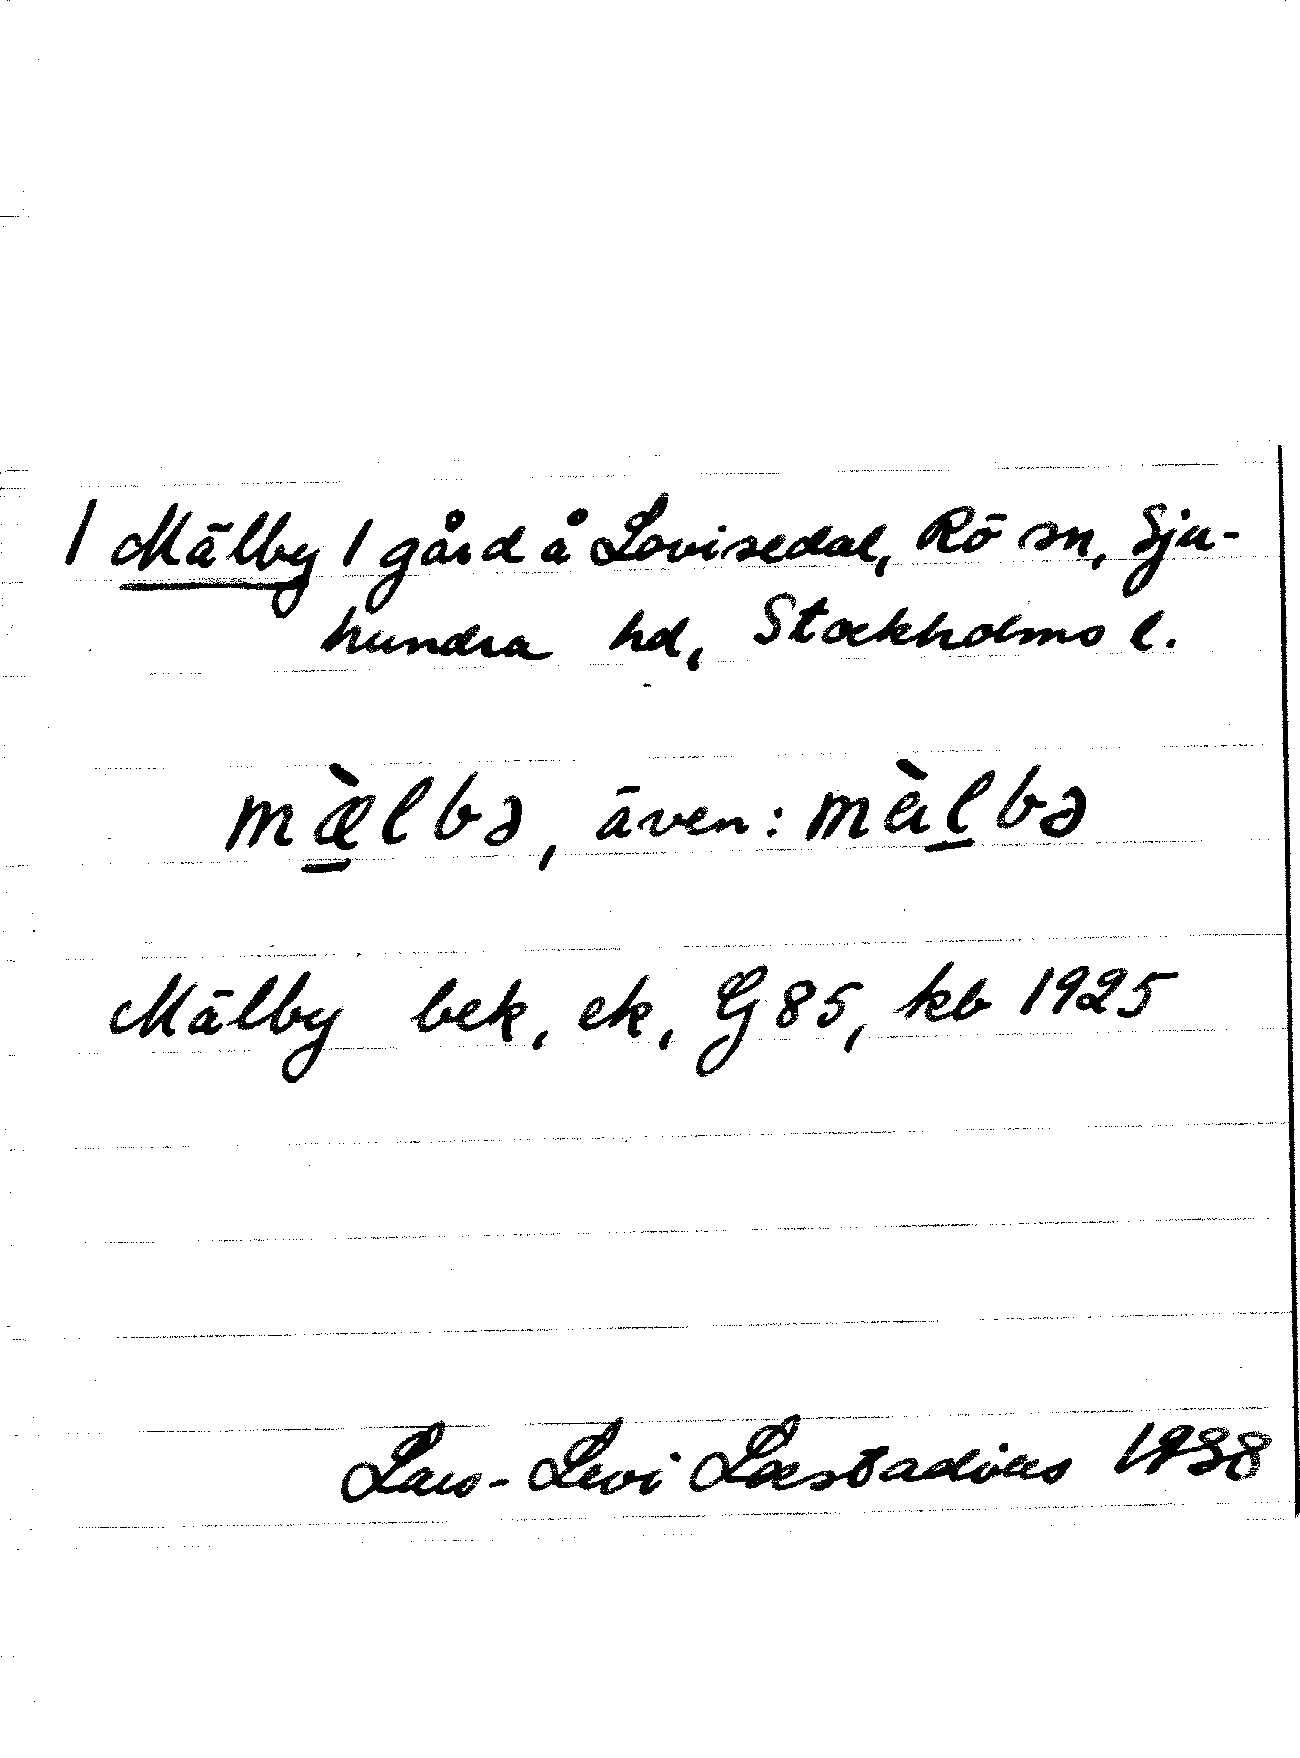 / Mälby / gård å Lovisedal, Rö sn, Sju-
hundra hd, Stockholms l.
mæ̀lbə, även: màlbə
Mälby bek, ek, G 85, kb 1925
Lars-Levi Læstadius 1938